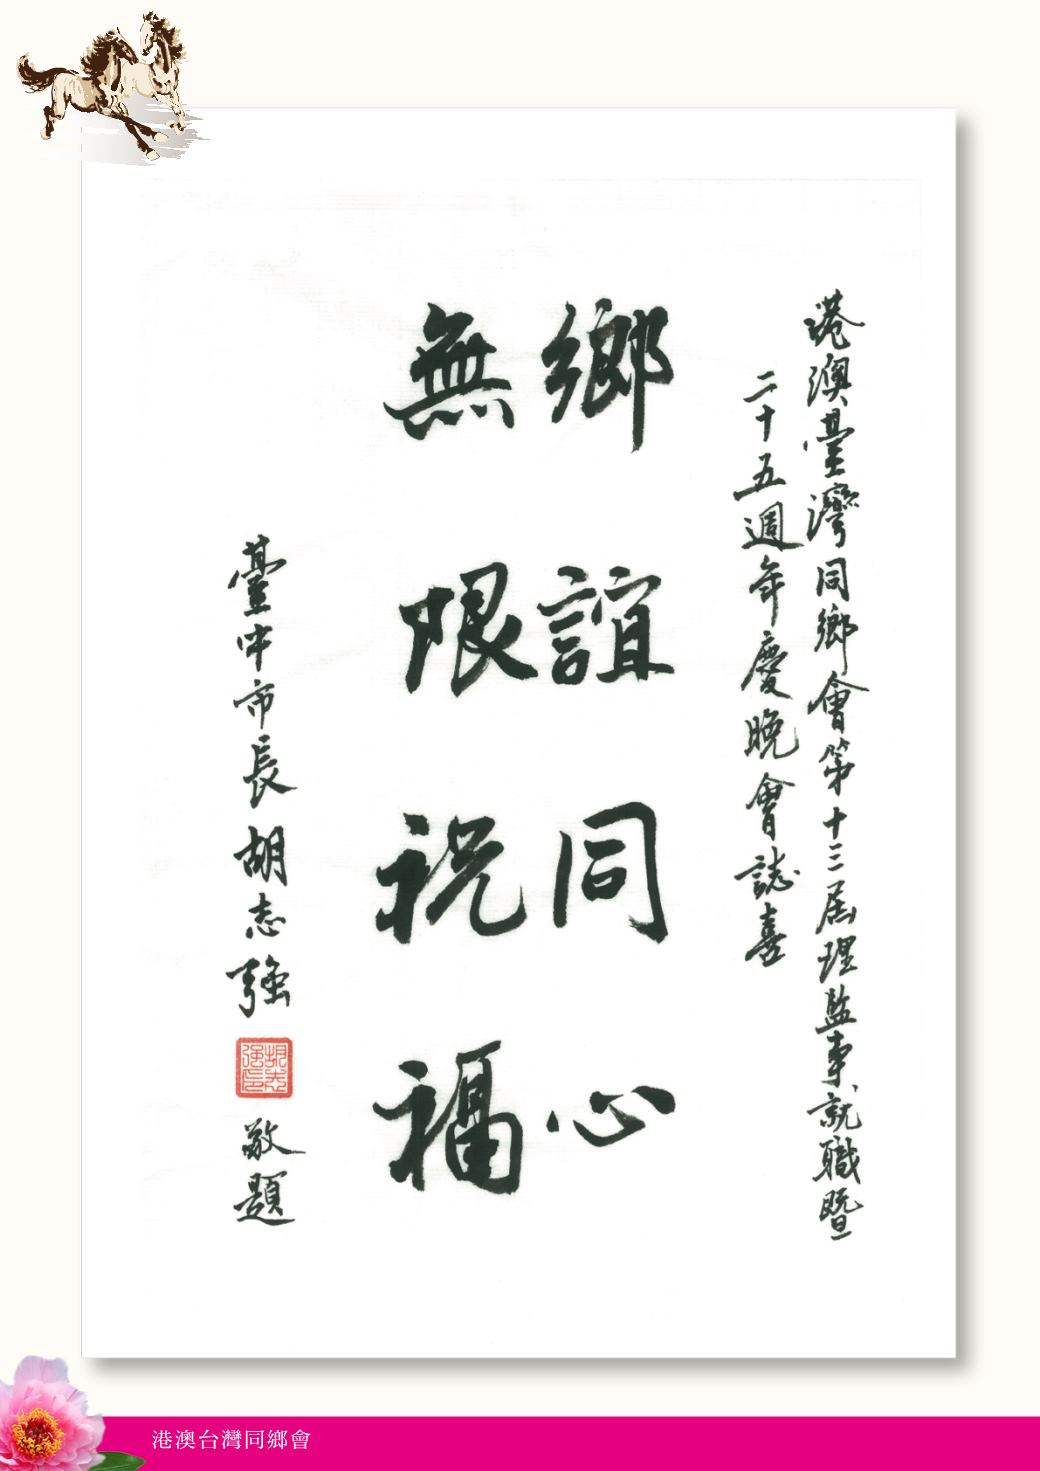 港澳臺灣同鄉會第十三屆理監事就職暨
二十五週年慶晚會誌喜
鄉誼同心
無限祝福
臺中市長胡志強
胡志強印
敬題
港澳台灣同鄉會